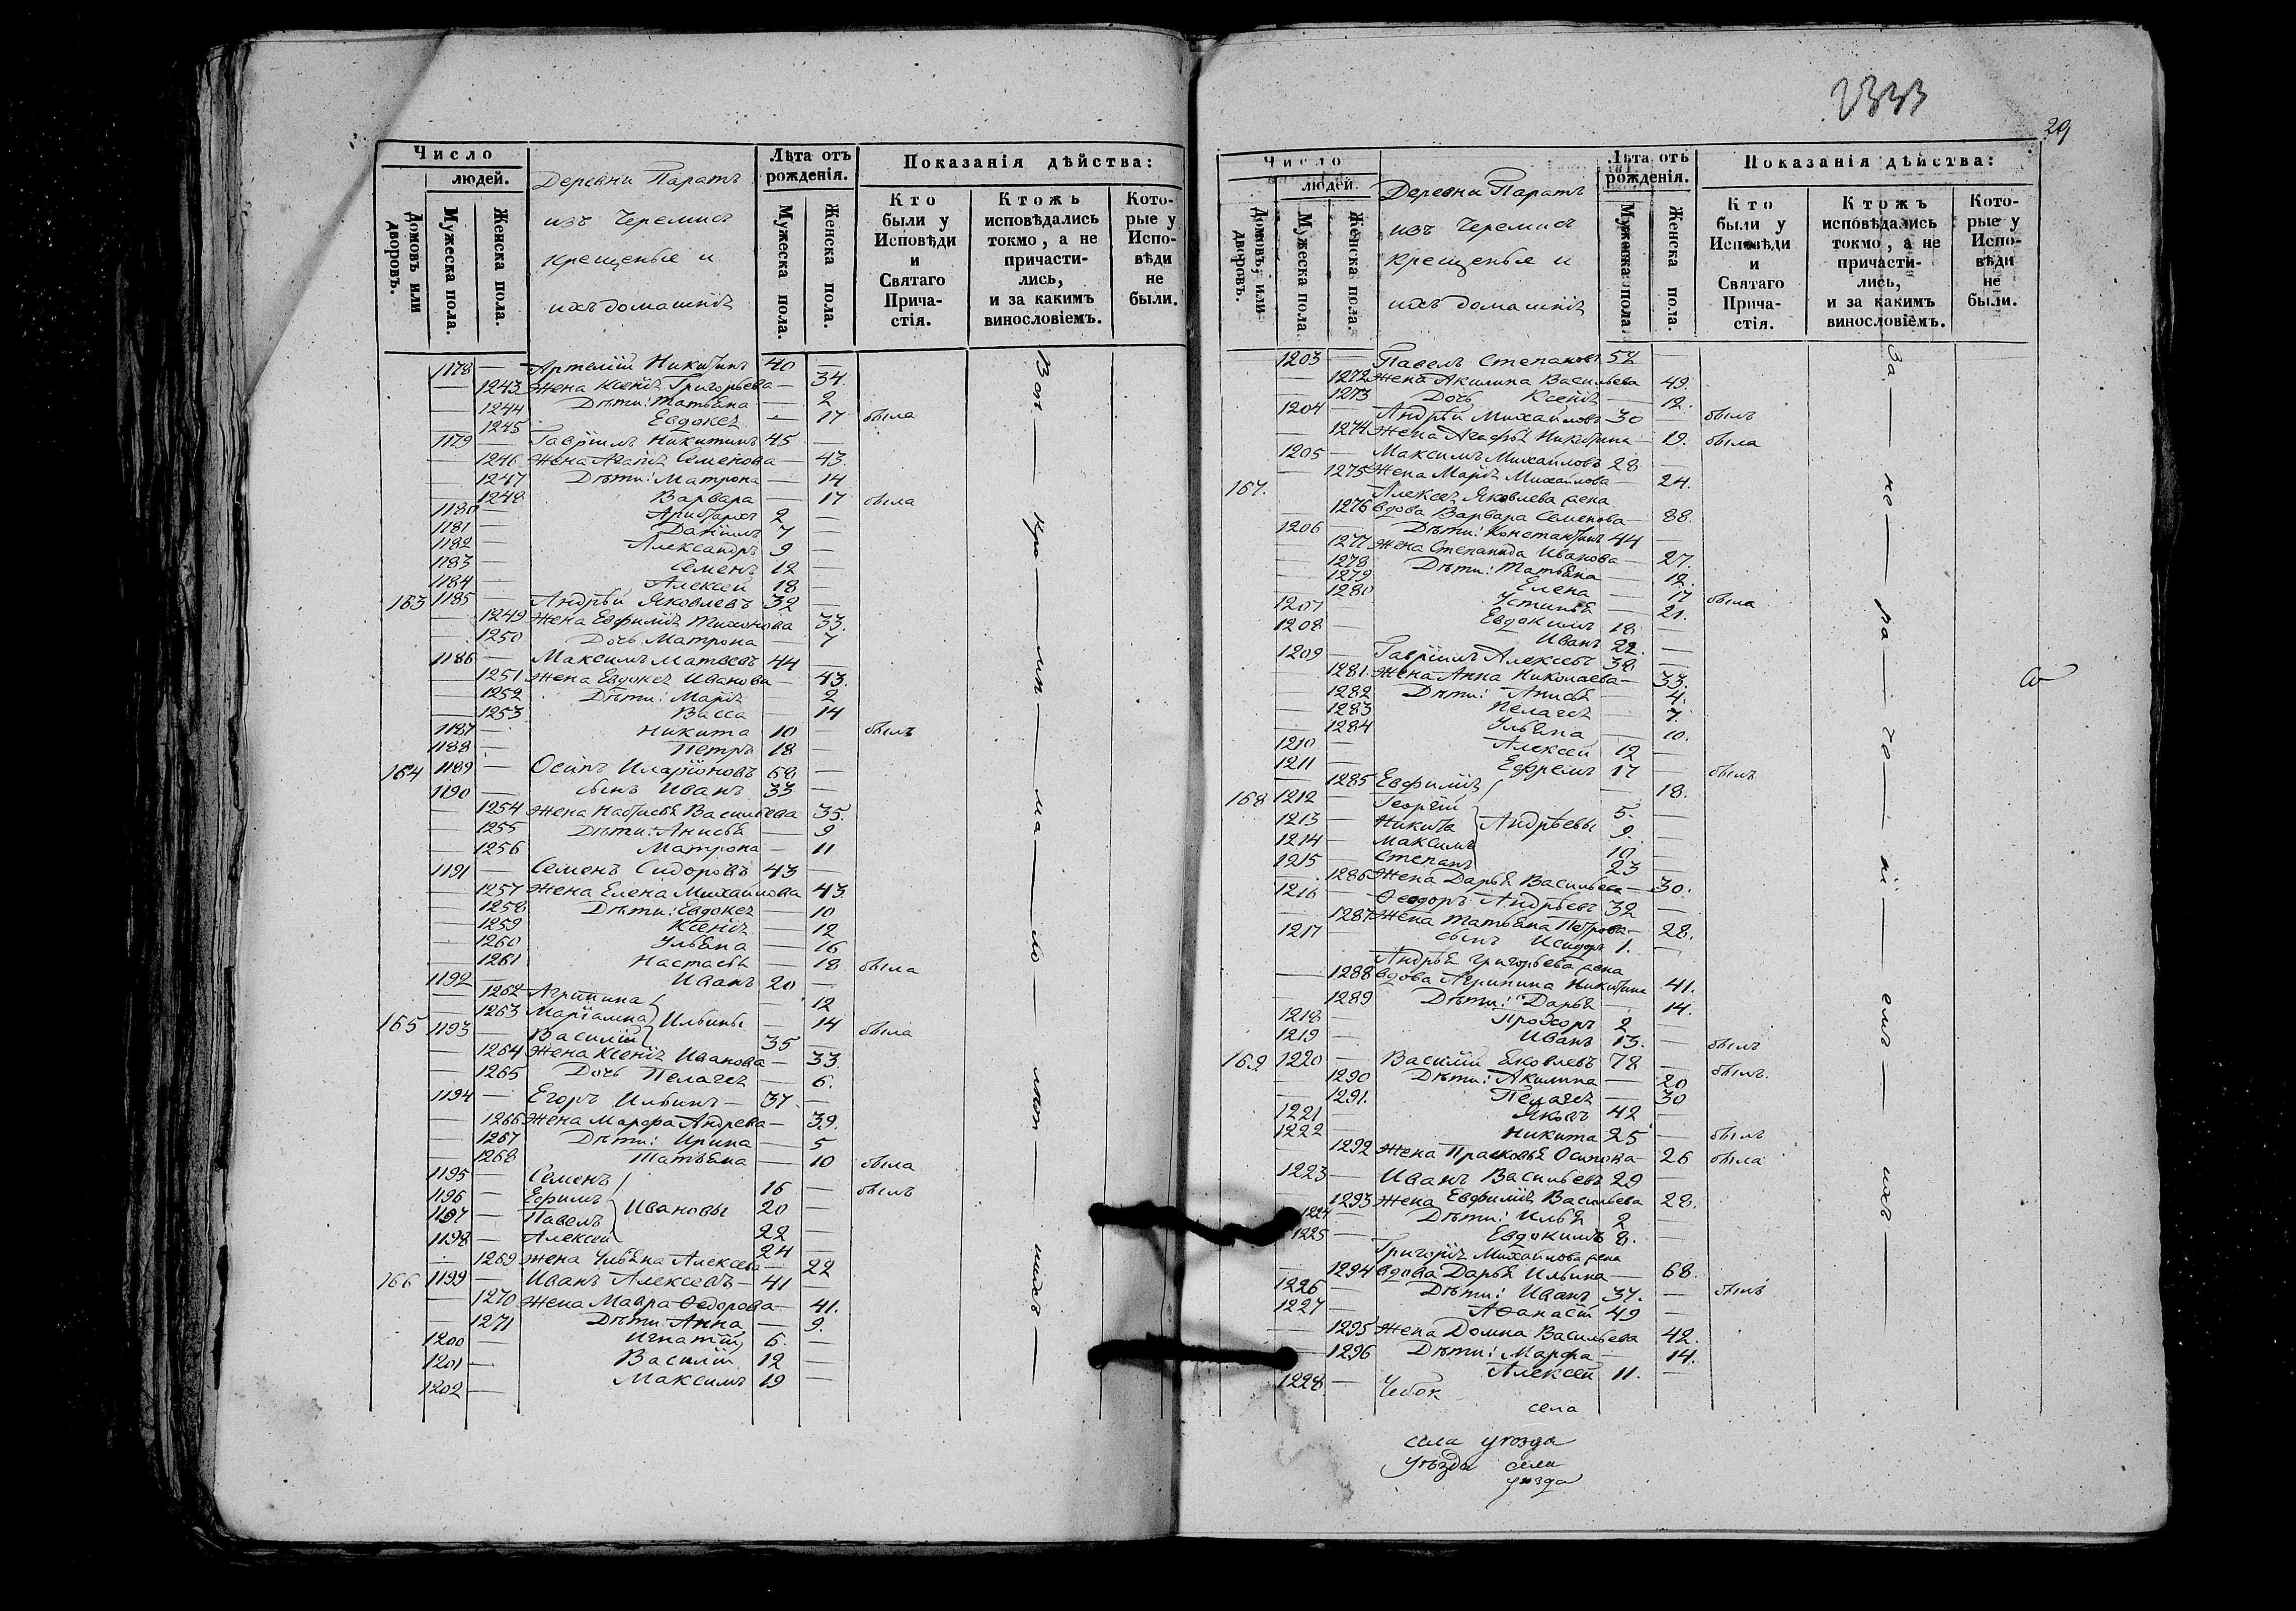 2333
29
Число
людей.
Домовъ или дворовъ.
Мужеска пола.
Женска пола.
Деревни Паратъ
изъ Черемисъ
крещеные и
ихъ домашніе
Лѣта отъ рожденія.
Мужеска пола.
Женска пола.
Показанія дѣйства:
Кто были у Исповѣди и Святаго Прича-стія.
Ктожъ исповѣдались токмо, а не причасти-лись, и за какимъ винословіемъ.
Кото-рые у Испо-вѣди не были.
1178 — Артемій Никитинъ 40 —
— 1243 Жена Ксенія Григорьева — 34.
— 1244 Дѣти: Татьяна — 2
1245 Евдокея — 17 была
1179 — Гавріилъ Никитинъ 45 —
— 1246 Жена Агапія Семенова — 43.
— 1247 Дѣти: Матрона — 14
— 1248 Варвара — 17 была
1180 — Аристархъ 2 —
1181 — Даніилъ 7 —
1182 — Александръ 9 —
1183 — Семенъ 12 —
1184 — Алексей 18 —
163 1185 — Андрѣй Яковлевъ 32 —
— 1249 Жена Евфимія Тихонова 33.
— 1250 Дочь Матрона — 7
1186 — Максимъ Матвеевъ 44 —
— 1251 Жена Евдокея Иванова — 43.
— 1252 Дѣти: Марія — 2
— 1253 Васса — 14
1187 — Никита 10 — былъ
1188 — Петръ 18 —
164 1189 — Осипъ Иларіоновъ 68 —
1190 — сынъ Иванъ 33 —
— 1254 Жена Настасья Васильева 35.
— 1255 Дѣти: Анисья — 9
— 1256 Матрона — 11
1191 — Семенъ Сидоровъ 43 —
— 1257 Жена Елена Михайлова 43.
— 1258 Дѣти: Евдокея — 10
— 1259 Ксенія — 12
— 1260 Ульяна — 16
— 1261 Настасья — 18 была
1192 — Иванъ 20 —
— 1262 Агрипина — 12
— 1263 Маріамна Ильины — 14 была
165 1193 — Василій 35 —
— 1264 Жена Ксенія Иванова — 33
— 1265 Дочь Пелагея — 6.
1194 — Егоръ Ильинъ — 37 —
— 1266 Жена Марфа Андрева — 39.
— 1267 Дѣти: Ирина — 5
— 1268 Татьяна — 10 была
1195 — Семенъ 16 — былъ
1196 — Ефимъ Ивановы 20 —
1197 — Павелъ 22 —
1198 — Алексей 24
— 1269 Жена Ульяна Алексева — 22
166 1199 — Иванъ Алексеевъ — 41
— 1270 Жена Мавра Федорова — 41.
— 1271 Дѣти: Анна — 9.
1200 — Игнатій 6. —
1201 — Василій 12 —
1202 — Максимъ 19 —
Число
людей.
Домовъ, или дворовъ.
Мужеска пола.
Женска пола.
Деревни Паратъ
изъ Черемисъ
крещеные и
ихъ домашніе
Лѣта отъ рожденія.
Мужеска пола.
Женска пола.
Показанія дѣйства:
Кто были у Исповѣди и Святаго Прича-стія.
Ктожъ исповѣдались токмо, а не причасти-лись, и за какимъ винословіемъ.
Кото-рые у Испо-вѣди не были.
1203 — Павелъ Степановъ 52 —
— 1272 Жена Акилина Васильева 49.
— 1273 Дочь Ксенія — 12.
1204 — Андрѣй Михайловъ 30 — былъ
— 1274 Жена Агафья Никитина — 19. была
1205 — Максимъ Михайловъ 28 —
— 1275 Жена Марія Михайлова — 24.
167. Алексея Яковлева жена
— 1276 вдова Варвара Семенова — 88.
1206 — Дѣти: Константинъ 44 —
— 1277 Жена Степанида Иванова — 27.
— 1278 Дѣти: Татьяна — 12.
— 1279 Елена — 17 была
— 1280 Устинья — 21.
1207 — Евдокимъ 18 —
1208 — Иванъ 22. —
1209 — Гавріилъ Алексеевъ 38 —
— 1281 Жена Анна Николаева — 33.
— 1282 Дѣти: Анисья — 4.
— 1283 Пелагея — 7.
— 1284 Ульяна — 10.
1210 — Алексей 12 —
1211 — Ефремъ 17 — былъ
— 1285 Евфимія — 18.
168 1212 — Георгій 5. —
1213 — Никита Андрѣевы 9. —
1214 — Максимъ 10 —
1215 — Степанъ 23 —
— 1286 Жена Дарья Васильева — 30.
1216 Феодоръ Андрѣевъ 32 —
— 1287 Жена Татьяна Петрова — 28.
1217 — сынъ Исидоръ 1. —
Андрея Григорьева жена
— 1288 вдова Агрипина Никитина 41.
— 1289 Дѣти: Дарья — 14.
1218 — Прохоръ 2 —
1219 — Иванъ 13. — былъ
169 1220 — Василій Яковлевъ 78 — былъ.
— 1290 Дѣти: Акилина — 20
— 1291. Пелагея — 30
1221 — Яковъ 42 —
1222 — Никита 25 — былъ
— 1292 Жена Прасковья Осипова — 26 была
1223 — Иванъ Васильевъ 29 —
— 1293 Жена Евфимія Васильева 28.
1224 — Дѣти: Илья 2 —
1225 — Евдокимъ 8. —
Григорія Михайлова жена
— 1294 вдова Дарья Ильина — 68.
1226 — Дѣти: Иванъ 37. — былъ
1227 — Афанасій 49 —
— 1295 Жена Домна Васильева 42.
— 1296 Дѣти: Марфа — 14.
1228 — Алексей 11. —
Чебок
села
села уѣзда
Уѣзды села
уѣзда